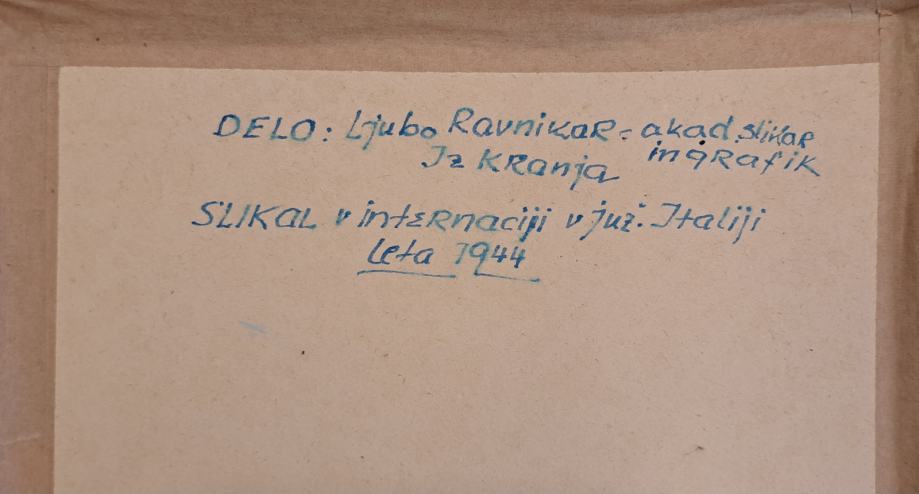 DELO: Ljubo Ravnikar - akad. slikar
Iz Kranja in grafik
SLIKAL v internaciji v juž. Italiji
leta 1944